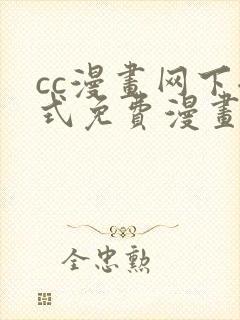 cc漫畫网下
式免費漫畫
全忠勲